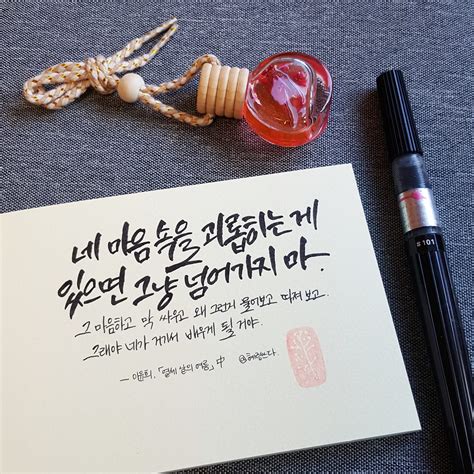 네 마음 속을 괴롭히는 게
있으면 그냥 넘어가지 마.
그 마음하고 막 싸우고 왜 그런지 물어보고 따져 보고.
그래야 네가 거기서 배우게 될 거야.
- 이윤희, 「열세 살의 여름」 中 @혜림쓰다.
#101